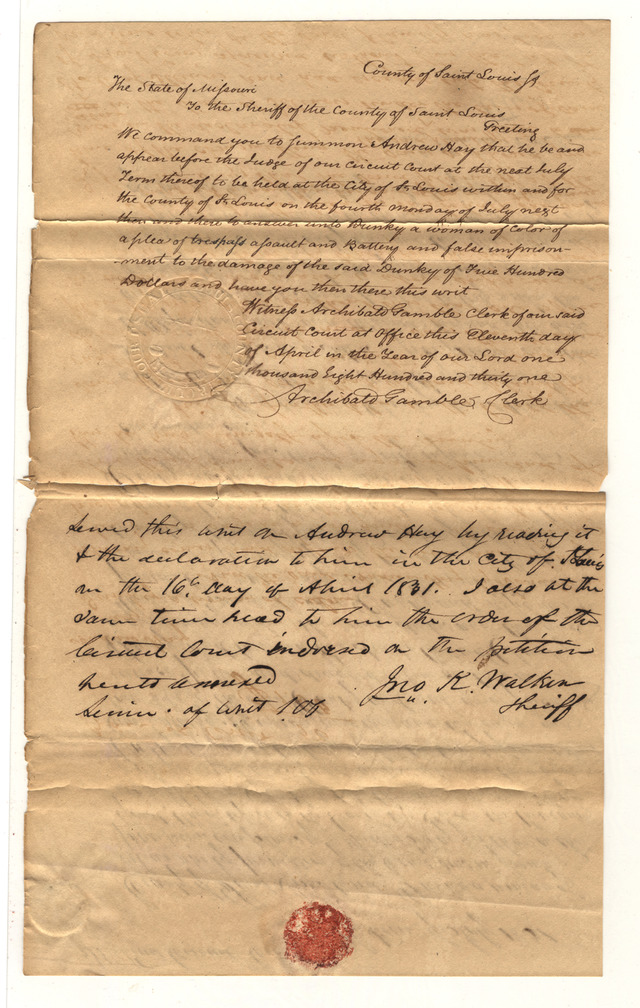 County of Saint Louis Ss
The State of Missouri
To the Sheriff of the County of Saint Louis
Greeting
We command you to summon Andrew Hay that he be and
appear before the Judge of our Circuit Court at the next July
Term thereof to be held at the City of St Louis within and for
the County of St Louis on the fourth monday of July next
then and there to answer unto Dunky a woman of Color of
a plea of trespass assault and Battery and false imprison-
ment to the damage of the said Dunky of Five Hundred
Dollars and have you then there this writ
Witness Archibald Gamble Clerk of our said
Circuit Court at Office this Eleventh day
of April in the Year of our Lord one
thousand Eight Hundred and thirty one
Archibald Gamble Clerk
Served this writ on Andrew Hay by reading it
& the declaration to him in the City of St Louis
on the 16th day of April 1831. I also at the
same time read to him the order of the
Circuit Court indorsed on the petition
hereto annexed
Jno. K. Walker
Sheriff
of writ